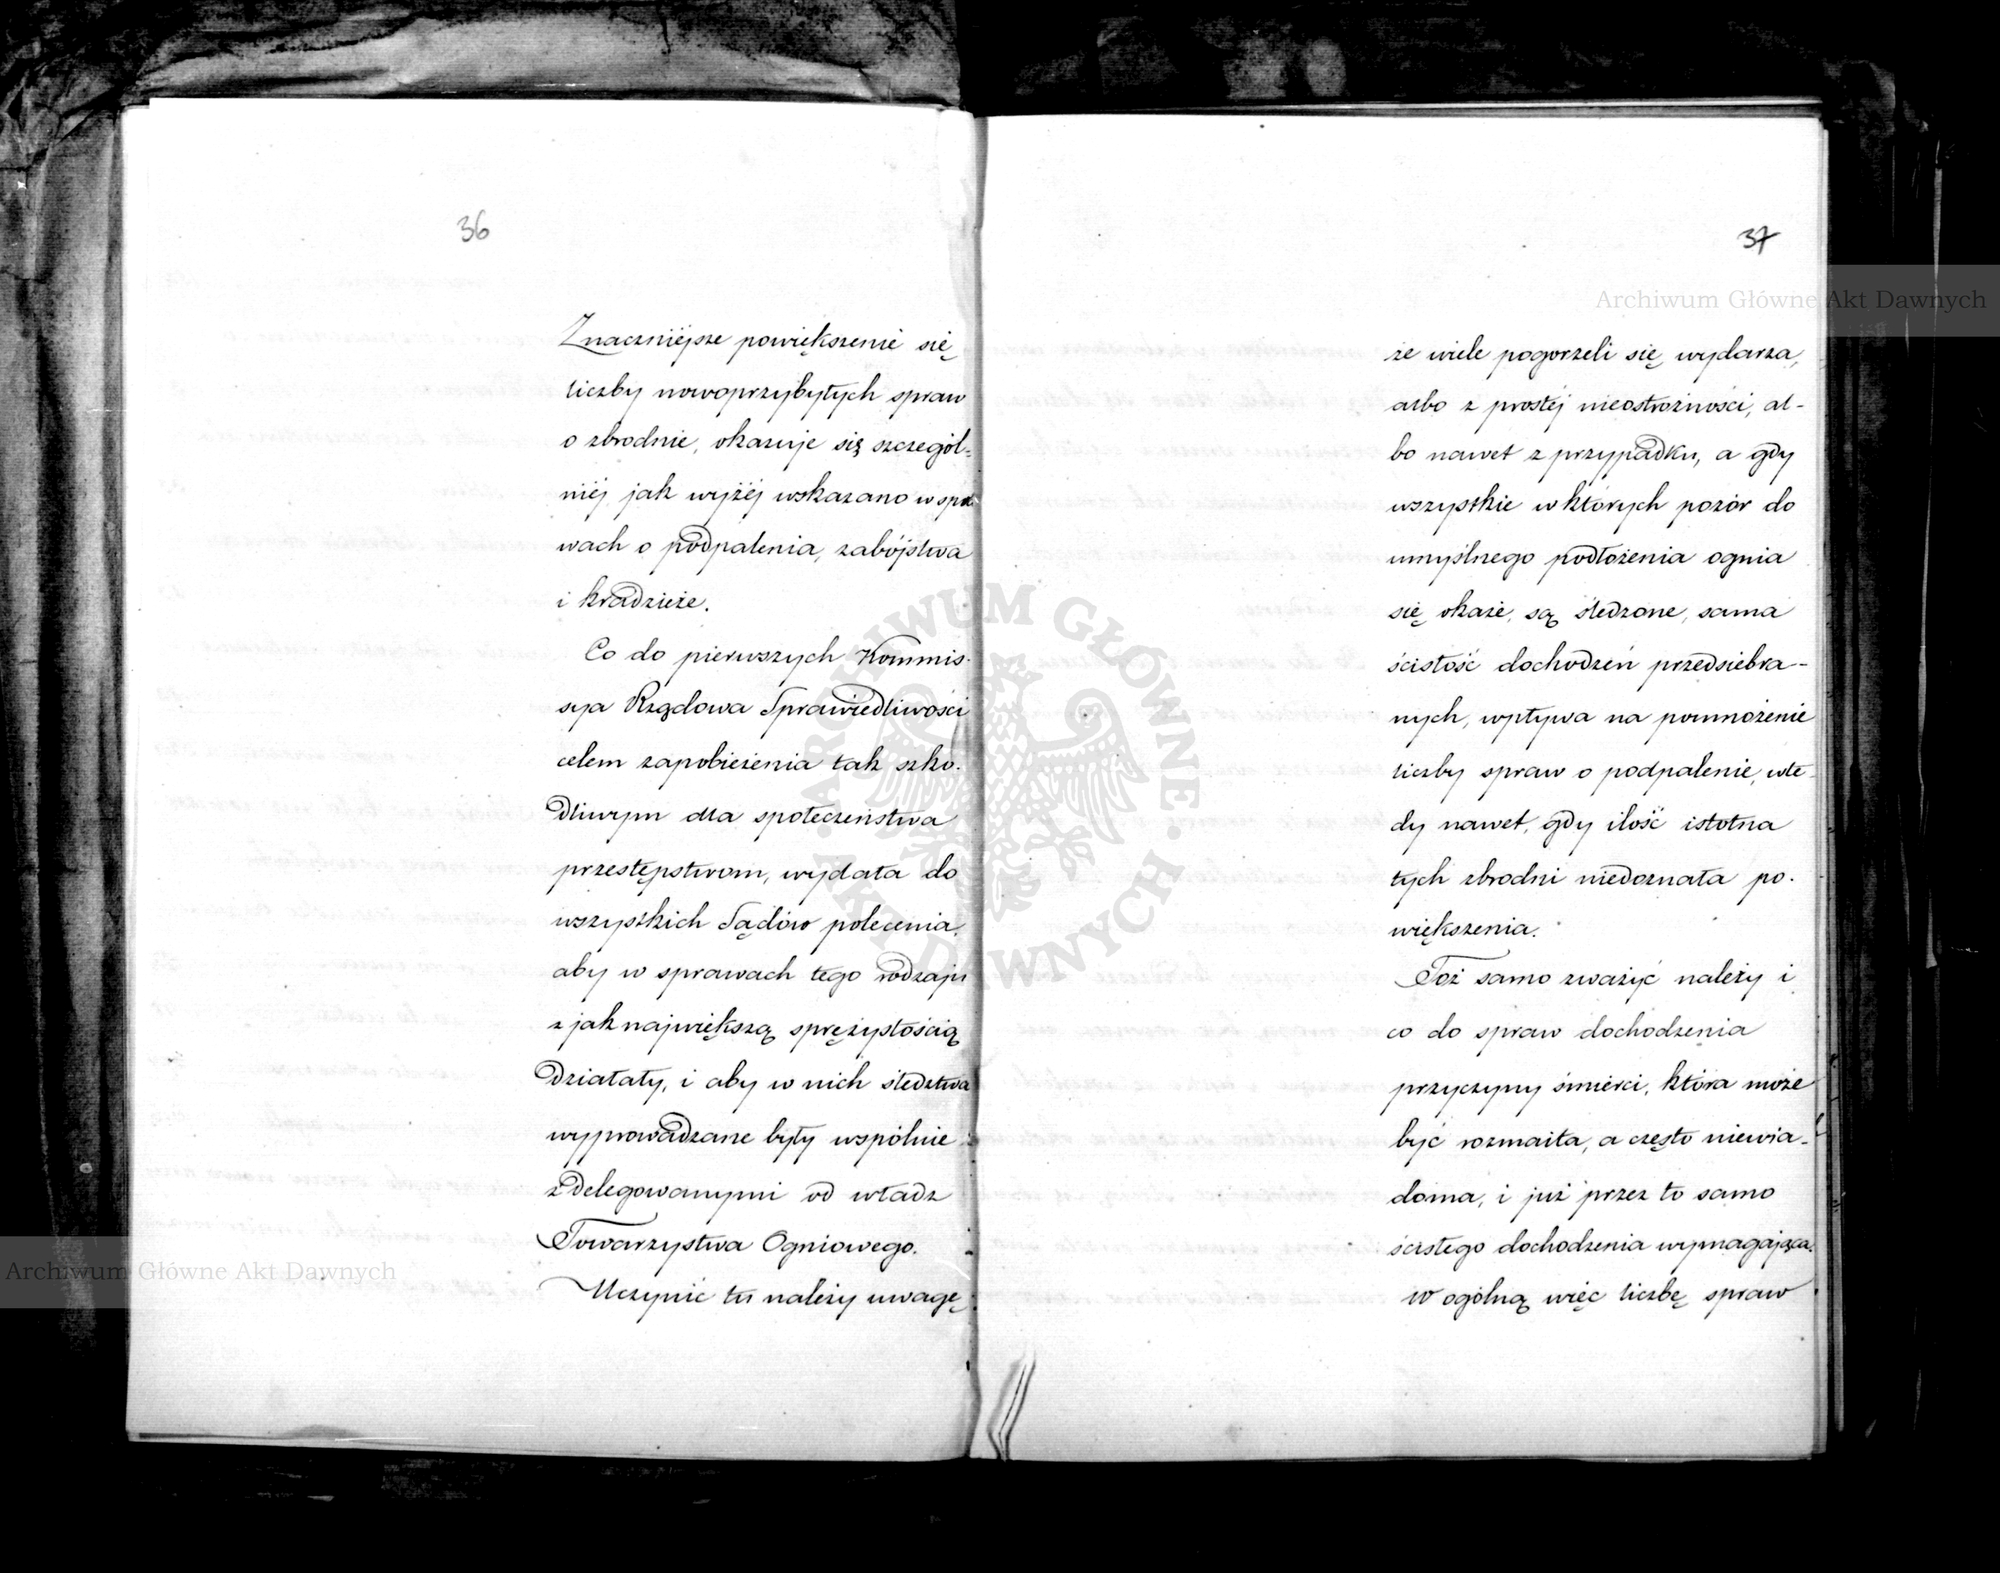 36
Znaczniéjsze powiększenie się
liczby nowoprzybyłych spraw
o zbrodnie, okazuje się szczegól=
niéj jak wyżéj wskazano w spra
wach o podpalenia, zabójstwa
i kradzieże.
Co do pierwszych Kommis-
sya Rządowa Sprawiedliwości
celem zapobieżenia tak szko-
dliwym dla społeczeństwa
przestępstwom, wydała do
wszystkich Sądów polecenia,
aby w sprawach tego rodzaju
z jak największą sprężystością
działały, i aby w nich śledztwa
wyprowadzane były wspólnie
z delegowanymi od władz
Towarzystwa Ogniowego.
Uczynić tu należy uwagę,
37
że wiele pogorzeli się wydarza,
albo z prostéj nieostrożności, al-
bo nawet z przypadku, a gdy
wszystkie w których pozór do
umyślnego podłożenia ognia
się okaże, są śledzone, sama
ścisłość dochodzeń przedsiebra-
nych, wpływa na pomnożenie
liczby spraw o podpalenie, wte-
dy nawet, gdy ilość istotna
tych zbrodni niedoznała po-
większenia.
Toż samo zważyć należy i
co do spraw dochodzenia
przyczyny śmierci, która może
być rozmaita, a często niewia-
doma, i już przez to samo
ścisłego dochodzenia wymagająca.
W ogólną więc liczbę spraw
Archiwum Główne Akt Dawnych
Archiwum Główne Akt Dawnych
ARCHIWUM GŁÓWNE AKT DAWNYCH